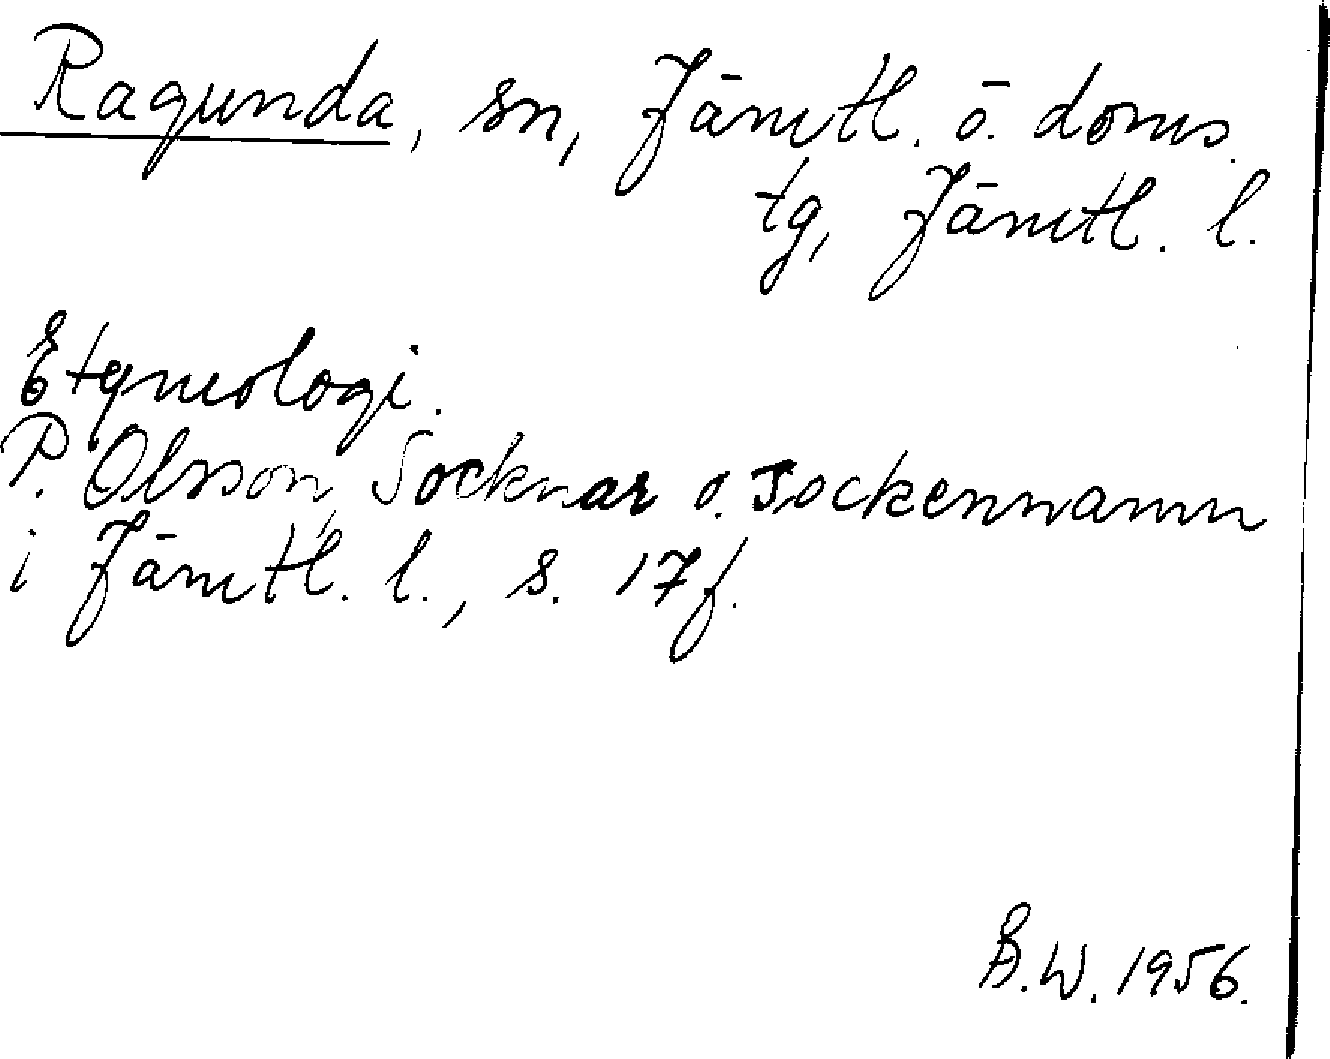 Ragunda, sn, Jämtl. ö. doms.
tg, Jämtl. l.
Etymologi.
P. Olsson, Socknar o. sockennamn
i Jämtl. l., s. 17f.
Å.W. 1956.